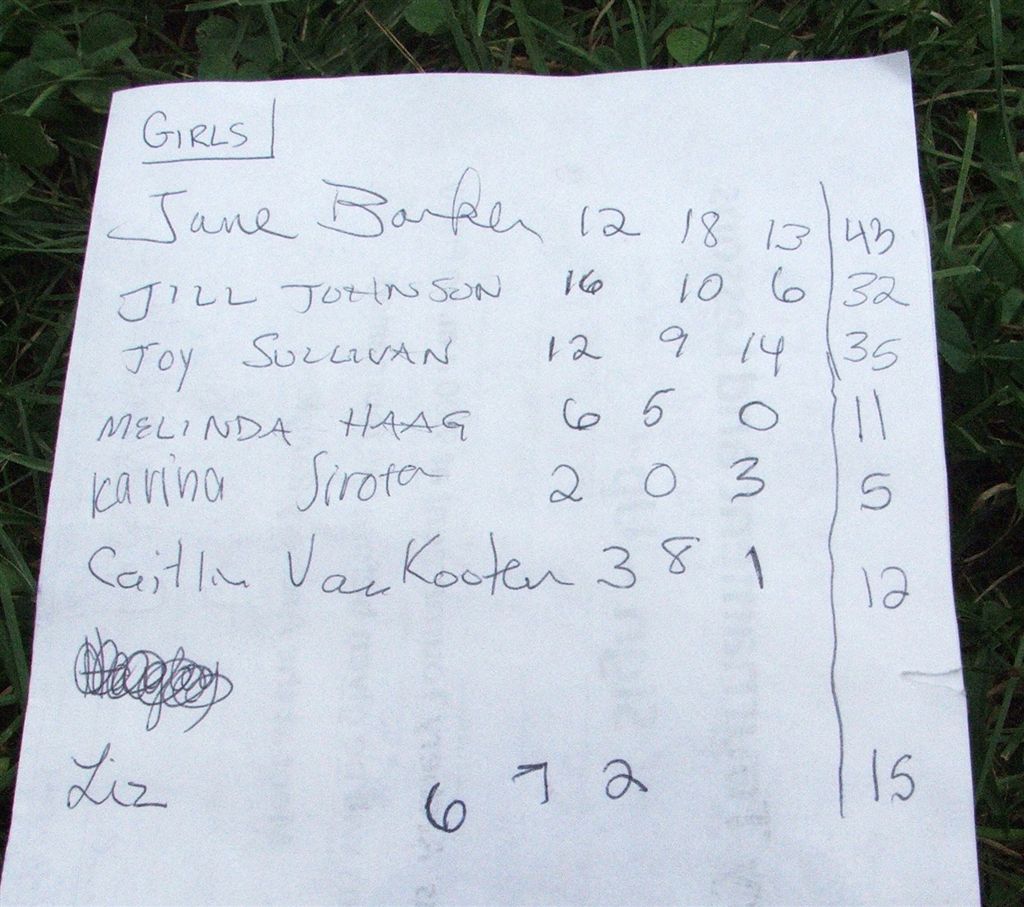 GIRLS
Jane Barker 12 18 13 43
JILL JOHNSON 16 10 6 32
JOY SULLIVAN 12 9 14 35
MELINDA HAAG 6 5 0 11
Karina Sirota 2 0 3 5
Caitlin Van Kooten 3 8 1 12
Liz 6 7 2 15